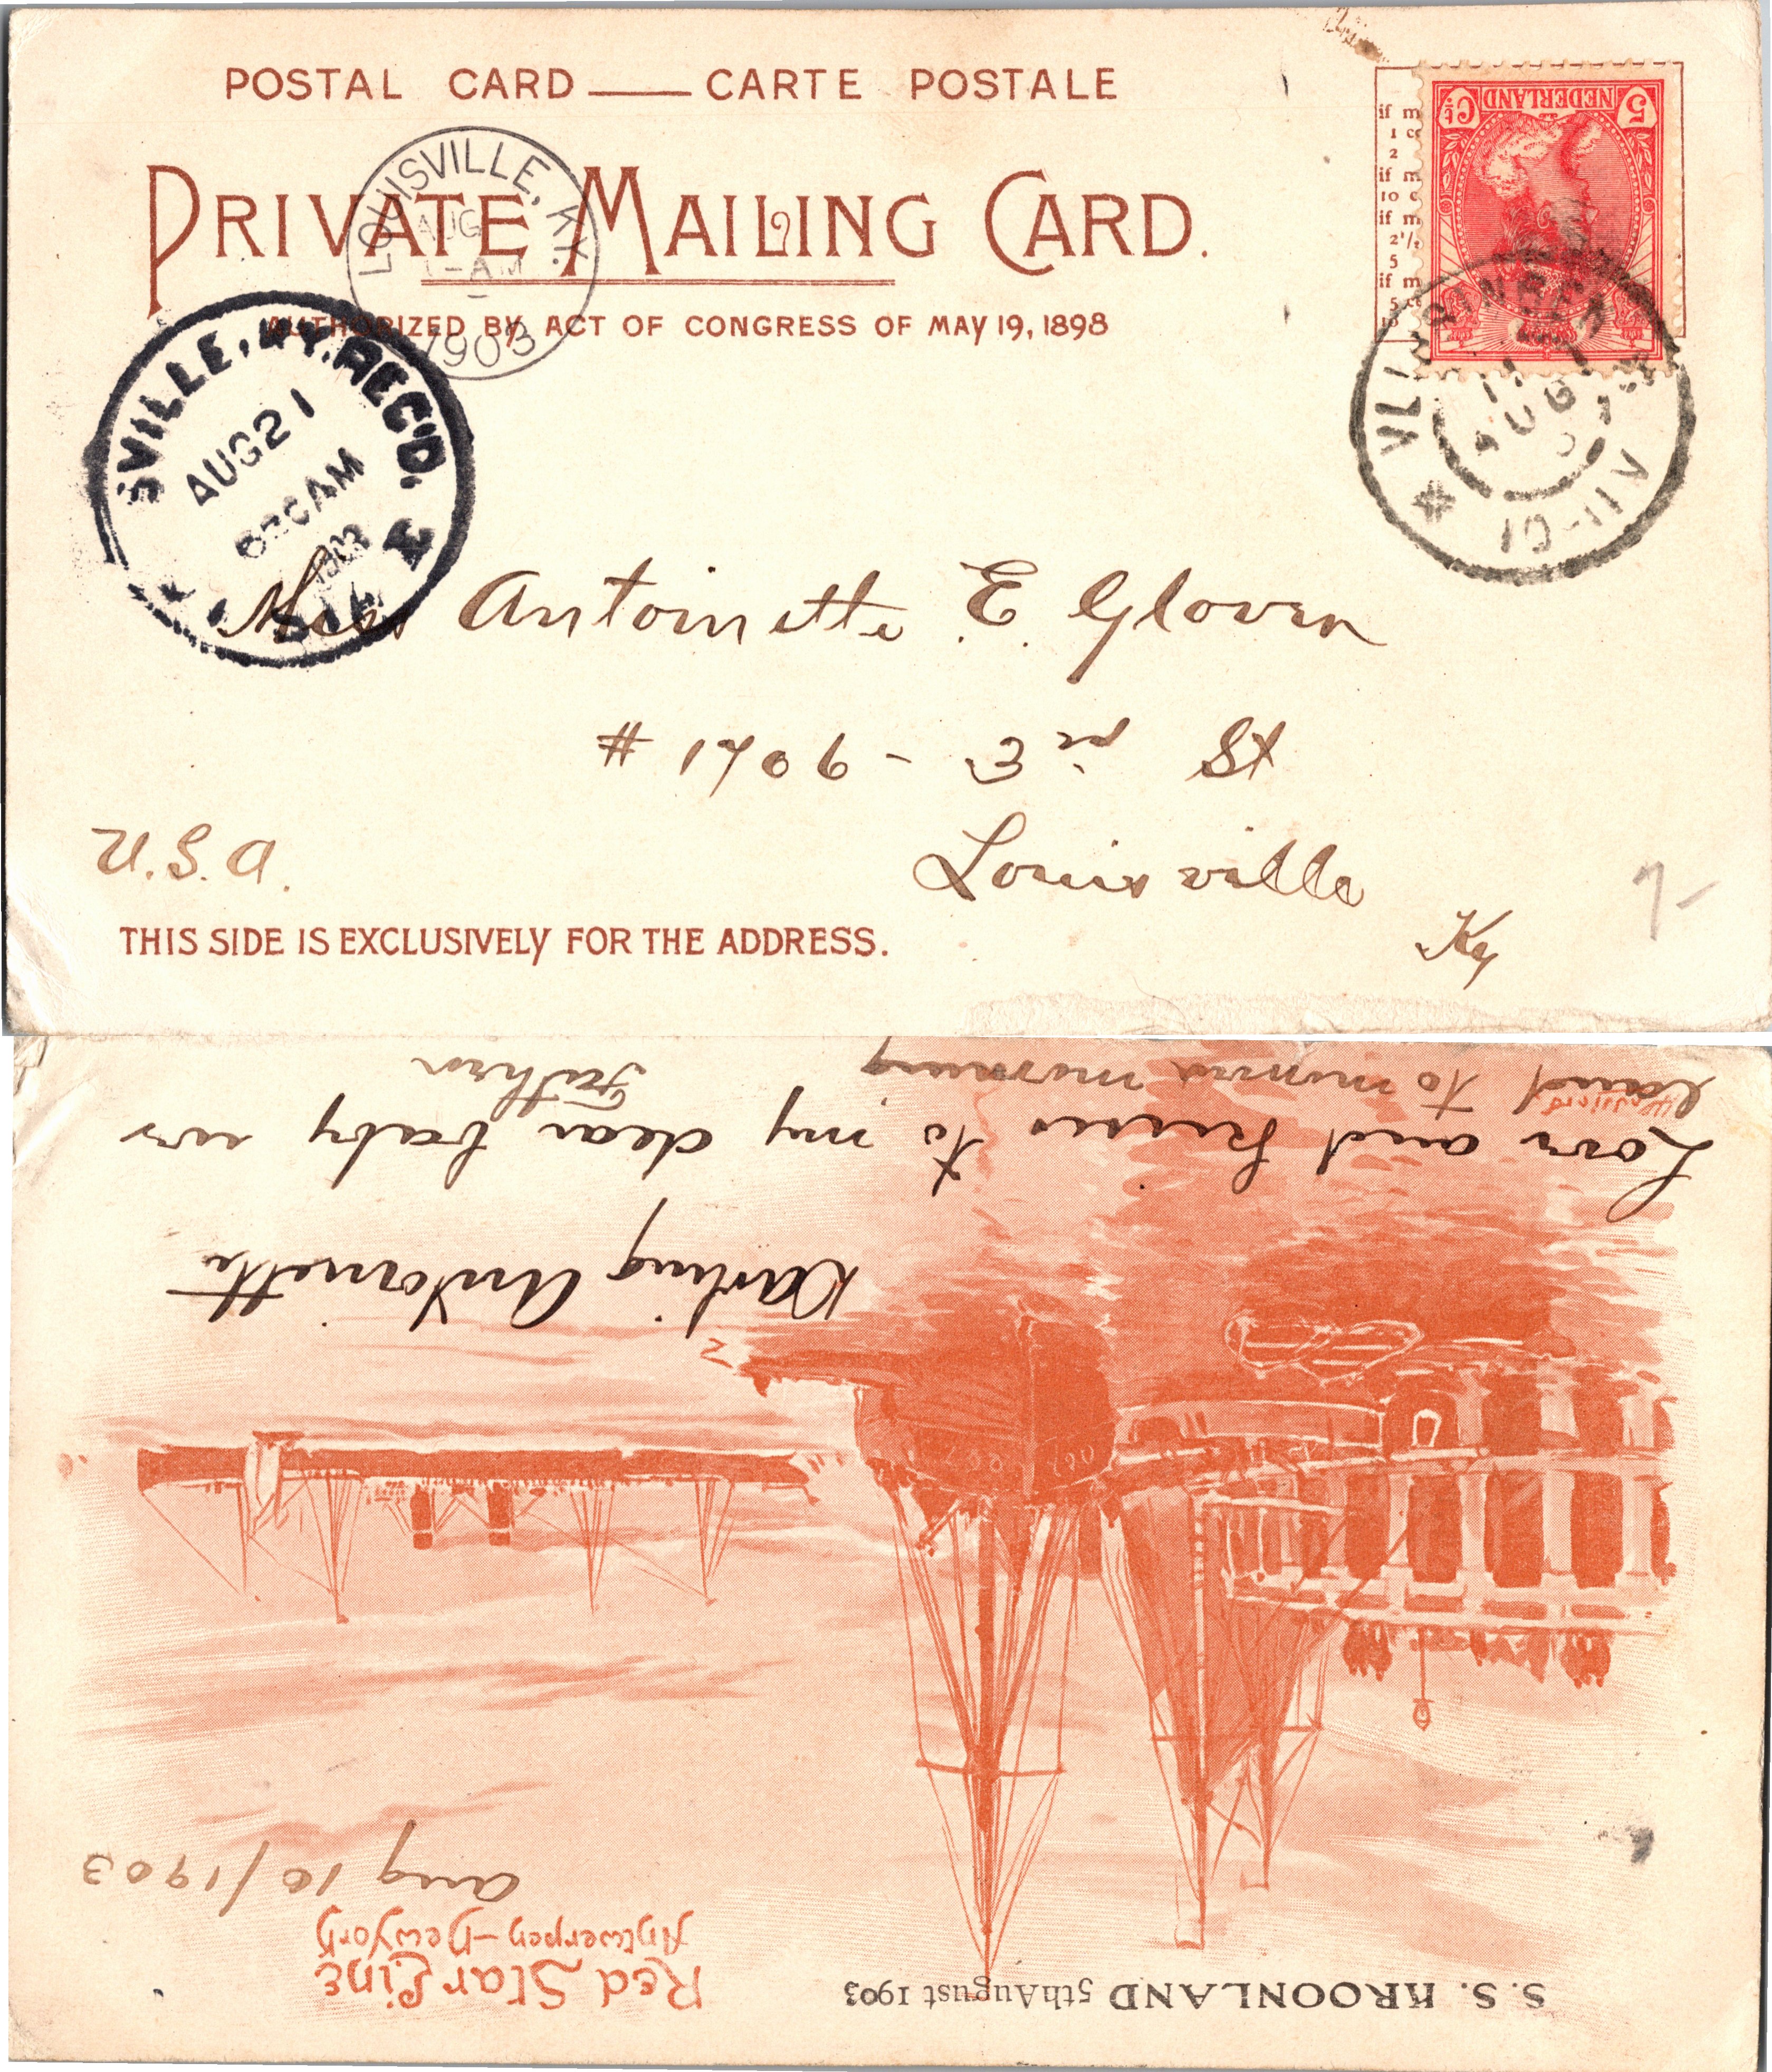 POSTAL CARD — CARTE POSTALE
PRIVATE MAILING CARD.
AUTHORIZED BY ACT OF CONGRESS OF MAY 19, 1898
LOUISVILLE, KY.
AUG
1-AM
1903
SVILLE, KY. REC'D.
AUG 21
AM
1903
NEDERLAND
5 Ct
if m
1 c
2
if m
10 c
if m
2½
5
if m
5 c
10
VLISSINGEN
11 AUG
10-11V
Miss Antoinette E. Glover
# 1706 - 3rd St
Louisville
Ky
U.S.A.
THIS SIDE IS EXCLUSIVELY FOR THE ADDRESS.
7-
S.S. KROONLAND 5th August 1903
Red Star Line
Antwerpen—New York
Aug 10/1903
Darling Antoinette
Love and kisses to my dear baby we
land to-morrow morning
Father